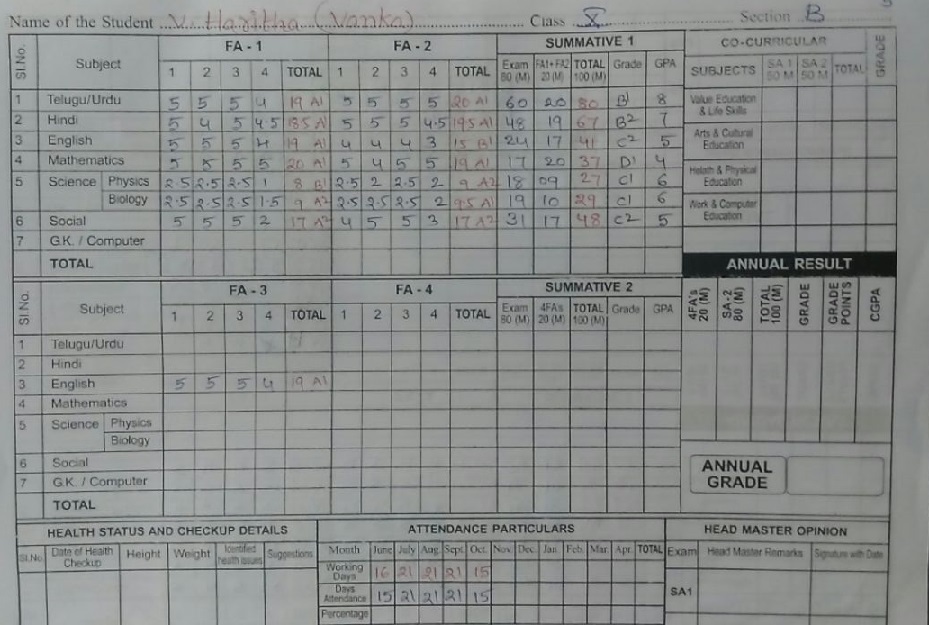 Name of the Student V. Haritha (Vanka) Class X Section B
Sl.No. Subject FA - 1 FA - 2 SUMMATIVE 1 CO-CURRICULAR GRADE
1 2 3 4 TOTAL 1 2 3 4 TOTAL Exam 80 (M) FA1+FA2 20 (M) TOTAL 100 (M) Grade GPA SUBJECTS SA 1 50 M SA 2 50 M TOTAL
1 Telugu/Urdu 5 5 5 4 19 A1 5 5 5 5 20 A1 60 20 80 B1 8 Value Education & Life Skills
2 Hindi 5 4 5 4.5 18.5 A1 5 5 5 4.5 19.5 A1 48 19 67 B2 7
3 English 5 5 5 4 19 A1 4 4 4 3 15 B1 24 17 41 C2 5 Arts & Cultural Education
4 Mathematics 5 5 5 5 20 A1 5 4 5 5 19 A1 17 20 37 D1 4
5 Science Physics 2.5 2.5 2.5 1 8 B1 2.5 2 2.5 2 9 A2 18 09 27 C1 6 Helath & Physical Education
Biology 2.5 2.5 2.5 1.5 9 A2 2.5 2.5 2.5 2 9.5 A1 19 10 29 C1 6 Work & Computer Education
6 Social 5 5 5 2 17 A2 4 5 5 3 17 A2 31 17 48 C2 5
7 G.K. / Computer
TOTAL
ANNUAL RESULT
Sl.No. Subject FA - 3 FA - 4 SUMMATIVE 2
1 2 3 4 TOTAL 1 2 3 4 TOTAL Exam 80 (M) 4FA's 20 (M) TOTAL 100 (M) Grade GPA 4FA's 20 (M) SA-2 80 (M) TOTAL 100 (M) GRADE GRADE POINTS CGPA
1 Telugu/Urdu
2 Hindi
3 English 5 5 5 4 19 A1
4 Mathematics
5 Science Physics
Biology
6 Social
7 G.K. / Computer
TOTAL
ANNUAL GRADE
HEALTH STATUS AND CHECKUP DETAILS ATTENDANCE PARTICULARS HEAD MASTER OPINION
Sl.No. Date of Health Checkup Height Weight Identified health issues Suggestions Month June July Aug. Sept. Oct. Nov. Dec. Jan. Feb. Mar. Apr. TOTAL Exam Head Master Remarks Signature with Date
Working Days 16 21 21 21 15
Days Attendance 15 21 21 21 15 SA1
Percentage